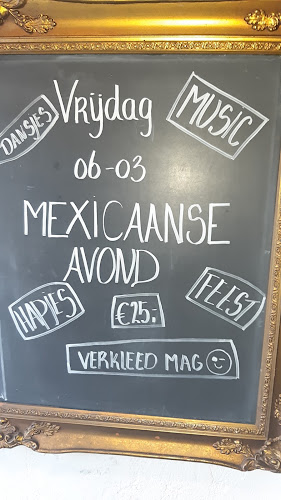 DANSJES
Vrijdag
MUSIC
06-03
MEXICAANSE
AVOND
HAPJES
€25.-
FEEST
VERKLEED MAG